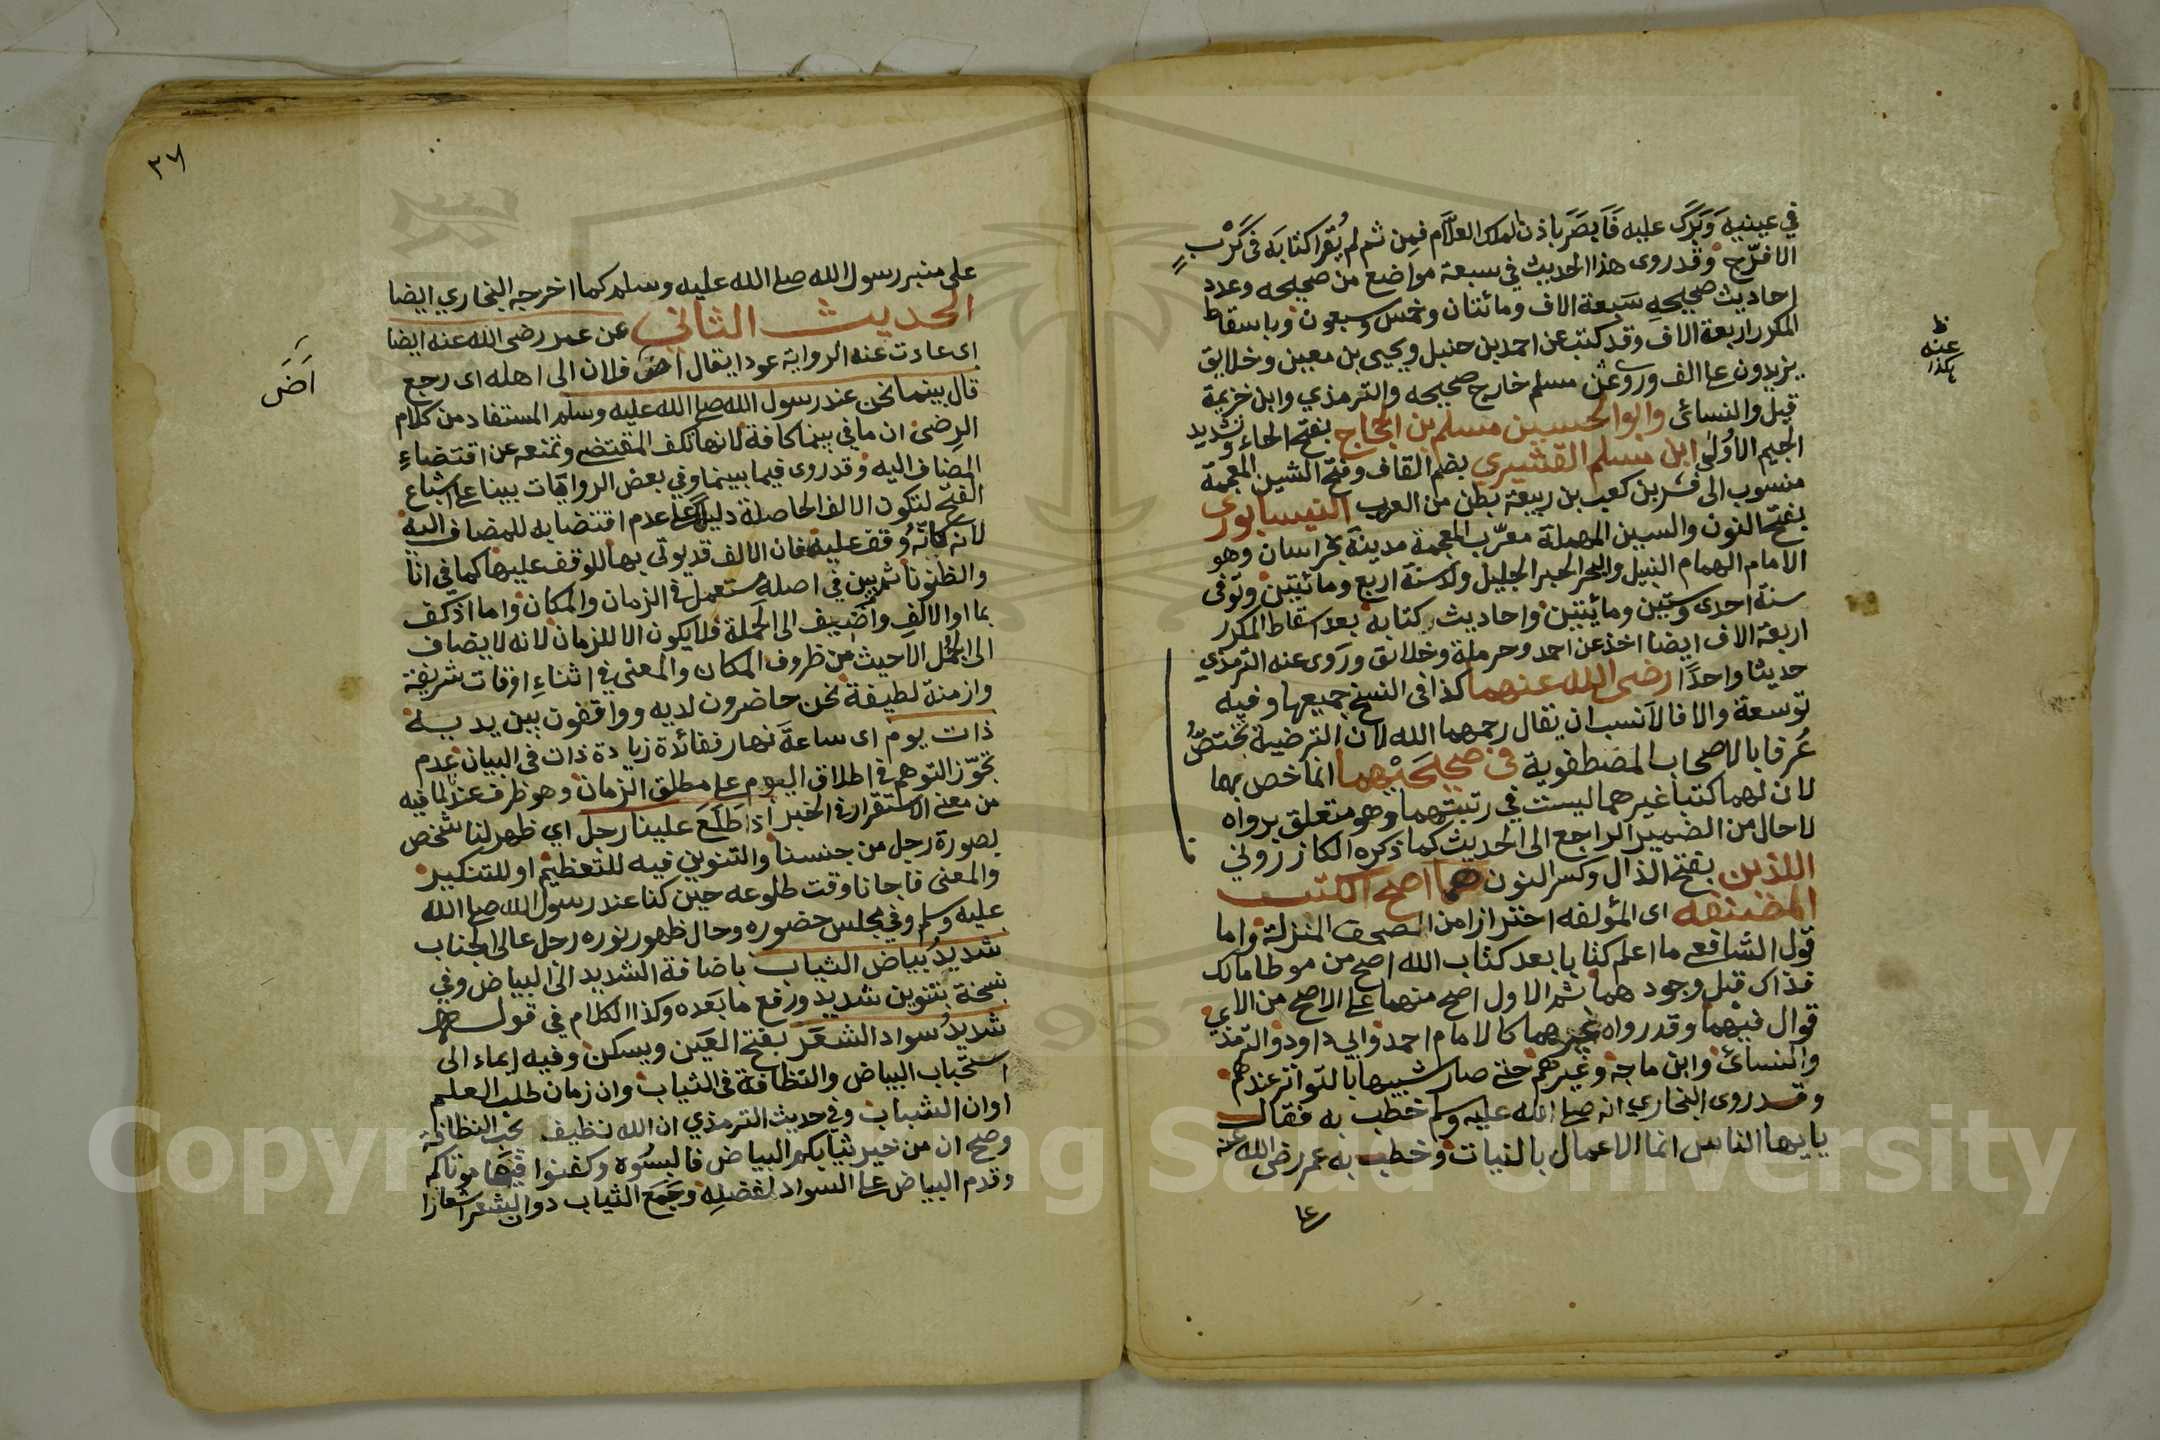 في عينيه وبرك عليه فابصر باذن الملك العلام فمن ثم لم يقرا كتابه في كرب
الا فرج وقد روى هذا الحديث في سبعة مواضع من صحيحه وعدد
احاديث صحيحه سبعة الاف ومائتان وخمس وسبعون وباسقاط
المكرر اربعة الاف وقد كتب عن احمد بن حنبل ويحيى بن معين وخلايق
يزيدون على الف وروى عن مسلم خارج صحيحه والترمذي وابن خزيمة
قيل والنسائى وابو الحسين مسلم بن الحجاج بفتح الحاء وتشديد
الجيم الاولى ابن مسلم القشيري بضم القاف وفتح الشين المعجمة
منسوب الى قشير بن كعب بن ربيعة بطن من العرب النيسابورى
بفتح النون والسين المهملة معرب المعجمة مدينة بخراسان وهو
الامام الهمام النبيل والبحر الحبر الجليل ولد سنة اربع ومائتين وتوفى
سنة احدى وستين ومائتين واحاديث كتابه بعد اسقاط المكرر
اربعة الاف ايضا اخذ عن احمد وحرملة وخلائق وروى عنه الترمذي
حديثا واحدا رضي الله عنهما كذا في النسخ جميعها وفيه
توسعة والا فالانسب ان يقال رحمهما الله لان الترضية تختص
عرفا بالاصحاب المصطفوية في صحيحيهما انما خص بهما
لان لهما كتبا غيرهما ليست في رتبتهما وهو متعلق برواه
لا حال من الضمير الراجع الى الحديث كما ذكره الكازروني
اللذين بفتح الذال وكسر النون هما اصح الكتب
المصنفه اى المؤلفه احترازا من الصحف المنزلة واما
قول الشافعي ما اعلم كتابا بعد كتاب الله اصح من موطا مالك
فذاك قبل وجودهما ثم الاول اصح منهما على الاصح من الا
قوال فيهما وقد رواه غيرهما كالامام احمد وابي داود والترمذي
والنسائ وابن ماجة وغيرهم حتى صار شبيها بالتواتر عندهم
وقد روى البخاري انه صلى الله عليه وسلم خطب به فقال
يايها الناس انما الاعمال بالنيات وخطب به عمر رضى الله عنه
على
ظ
عنه
هكذا
٣٧
على منبر رسول الله صلى الله عليه وسلم كما اخرجه البخاري ايضا
الحديث الثاني عن عمر رضى الله عنه ايضا
اى عادت عنه الرواية عودا يقال اض فلان الى اهله اى رجع
قال بينما نحن عند رسول الله صلى الله عليه وسلم المستفاد من كلام
الرضى ان ما في بينما كافة لانها تكف المقتضى وتمنعه عن اقتضاء
المضاف اليه وقد روى فيما بينما وفي بعض الروايات بينا على اشباع
الفتح لتكون الالف الحاصلة دليلا على عدم اقتضابه للمضاف اليه
لانه كانه وقف عليه فان الالف قد يوتى بها للوقف عليها كما في انا
والظنونا ثم بين في اصله مستعمل في الزمان والمكان واما اذ كف
بما او الالف واضيف الى الجملة فلا يكون الا للزمان لانه لا يضاف
الى الجمل الا حيث من ظروف المكان والمعنى في اثناء اوقات شريفة
وازمنة لطيفة نحن حاضرون لديه وواقفون بين يديه
ذات يوم اى ساعة نهار ففائدة زيادة ذات في البيان عدم
تجوز التوهم في اطلاق اليوم على مطلق الزمان وهو ظرف عند لما فيه
من معنى الاستقرار في الخبر اذ طلع علينا رجل اي ظهر لنا شخص
بصورة رجل من جنسنا والتنوين فيه للتعظيم او للتنكير
والمعنى فاجانا وقت طلوعه حين كنا عند رسول الله صلى الله
عليه وسلم وفي مجلس حضوره وحال ظهور نوره رجل عالى الجناب
شديد بياض الثياب باضافة الشديد الى البياض وفي
نسخة بتنوين شديد ورفع ما بعده وكذا الكلام في قوله
شديد سواد الشعر بفتح العين ويسكن وفيه ايماء الى
استحباب البياض والنظافة في الثياب وان زمان طلب العلم
اوان الشباب وفي حديث الترمذي ان الله نظيف يحب النظافة
وصح ان من خير ثيابكم البياض فالبسوه وكفنوا فيها موتاكم
وقدم البياض على السواد لفضله وجمع الثياب دون الشعر اشعارا
اض
Copyright © King Saud University
1957